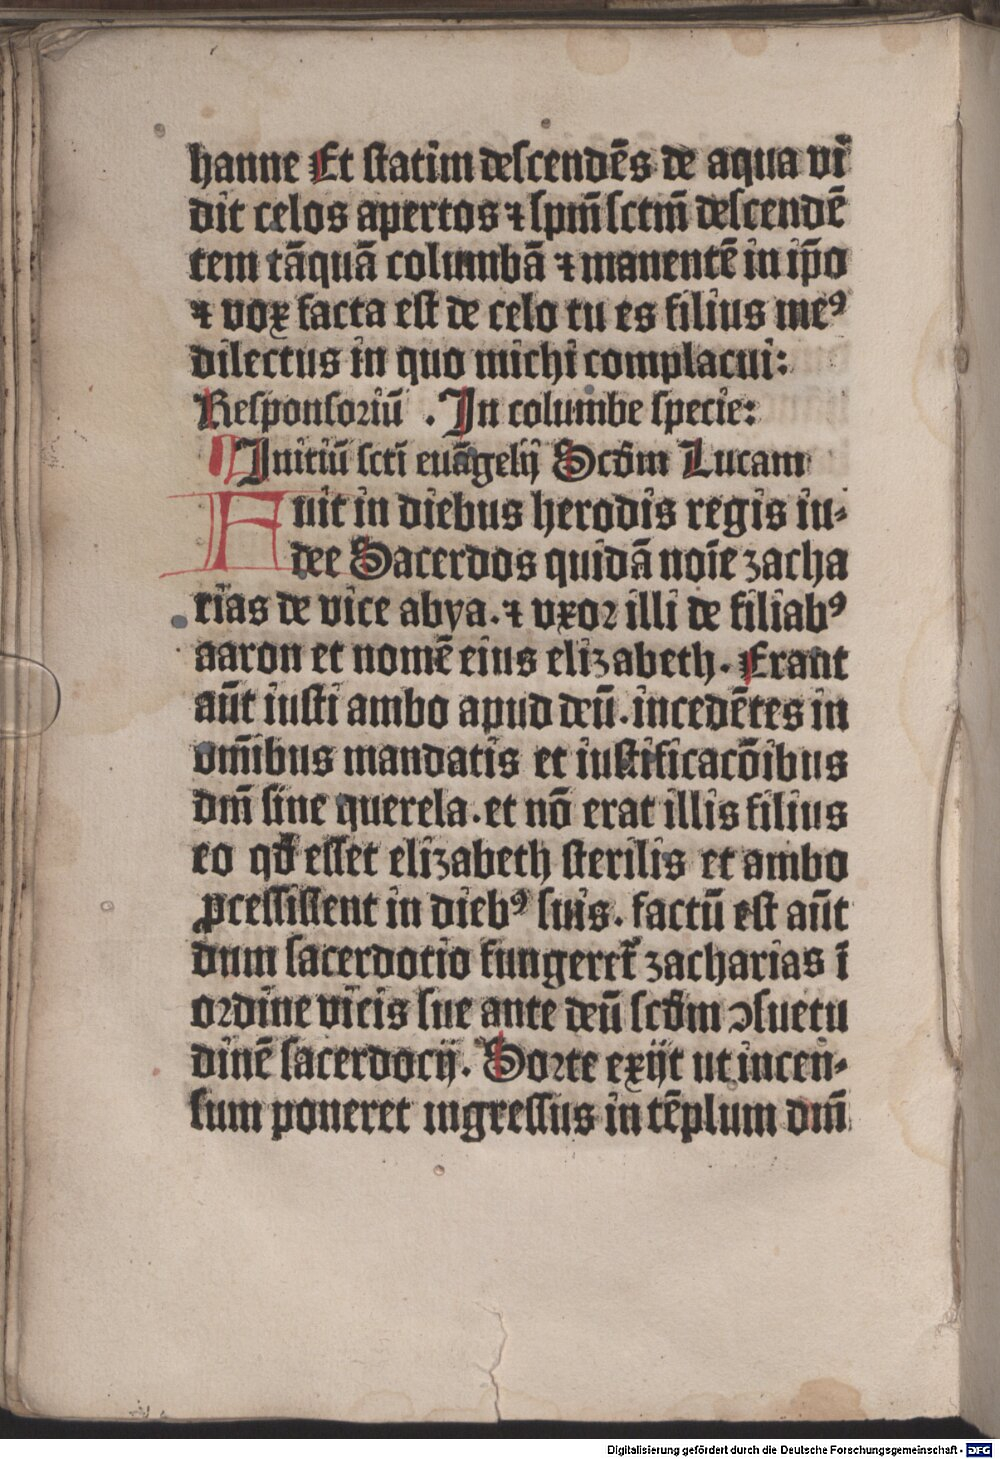 hanne Et ſtatim deſcendēs de aqua vi
dit celos apertos ⁊ ſpm̄ ſctm̄ deſcendē
tem tāquā columbā ⁊ manentē in ip̄o
⁊ vox facta eſt de celo tu es filius meꝰ
dilectus in quo michi complacui:
Reſponſoriū . In columbe ſpecie:
Initiū ſcti̅ euāgelij Scd̄m Lucam
Fuit in diebus herodis regis iu⸗
dee Sacerdos quidā noi̅e zacha
rias de vice abya. ⁊ vxor illi de filiabꝰ
aaron et nomē eius elizabeth. Erant
aūt iuſti ambo apud deū. incedētes in
om̄ibus mandatis et iuſtificacōibus
dm̄ ſine querela. et nō erat illis filius
eo qd̄ eſſet elizabeth ſterilis et ambo
ꝓceſſiſſent in diebꝰ ſuis. factū eſt aūt
dum ſacerdotio fungeret᷑ zacharias ī
ordine vicis ſue ante deū ſcd̄m ↄſuetu
dinē ſacerdocij. Sorte exijt ut incen⸗
ſum poneret ingreſſus in tēplum dm̄
Digitalisierung gefördert durch die Deutsche Forschungsgemeinschaft - DFG